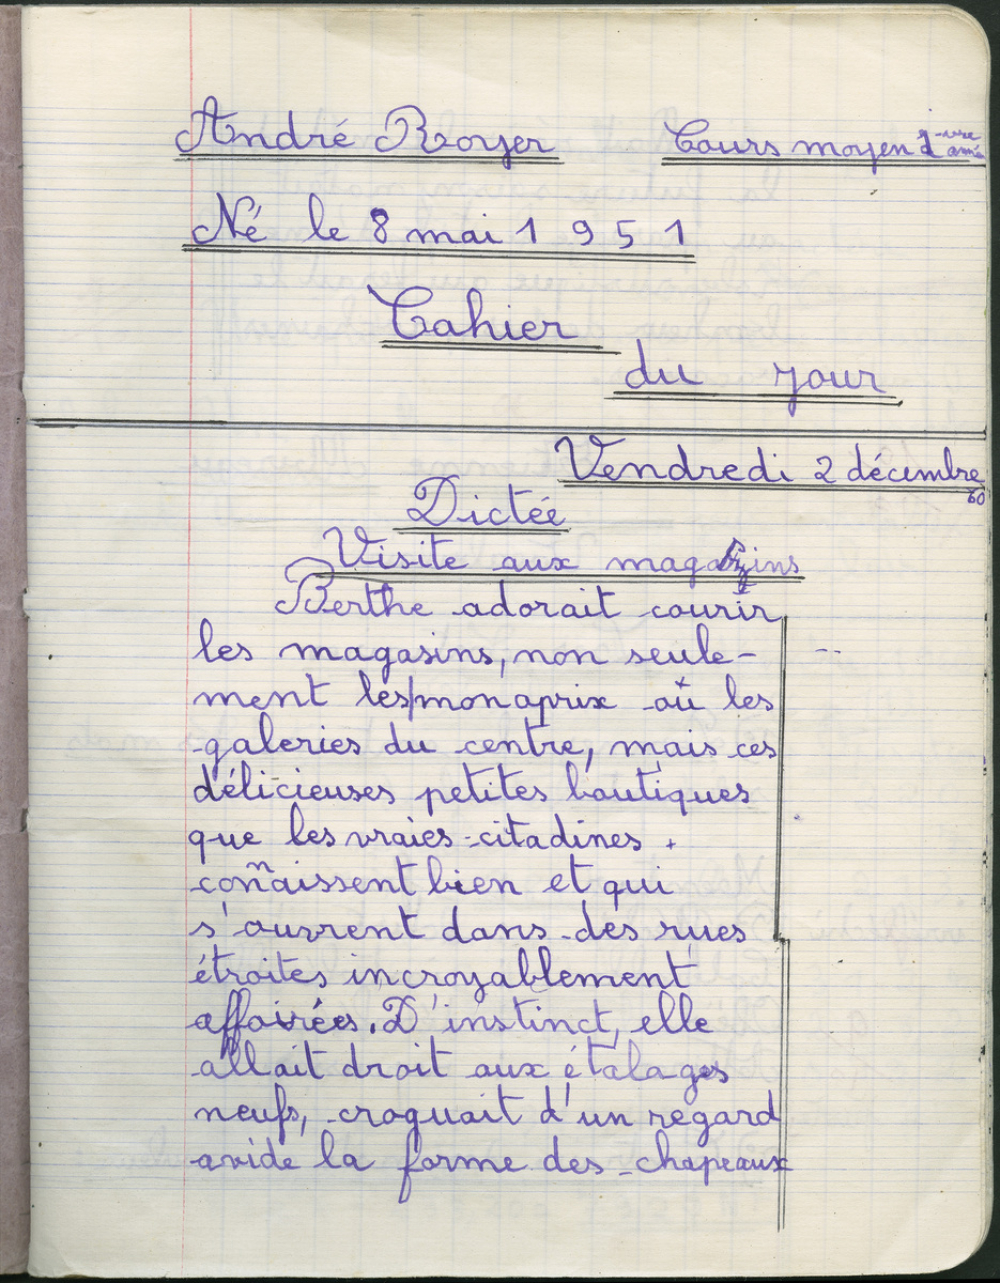 André Royer Cours moyen 1ère année
Né le 8 mai 1951
Cahier
du jour
Vendredi 2 décembre
60
Dictée
Visite aux magasins
Berthe adorait courir
les magasins, non seule-
ment les monoprix où les
galeries du centre, mais ces
délicieuses petites boutiques
que les vraies citadines
connaissent bien et qui
s'ouvrent dans des rues
étroites incroyablement
affairées. D'instinct, elle
allait droit aux étalages
neufs, croquait d'un regard
avide la forme des chapeaux